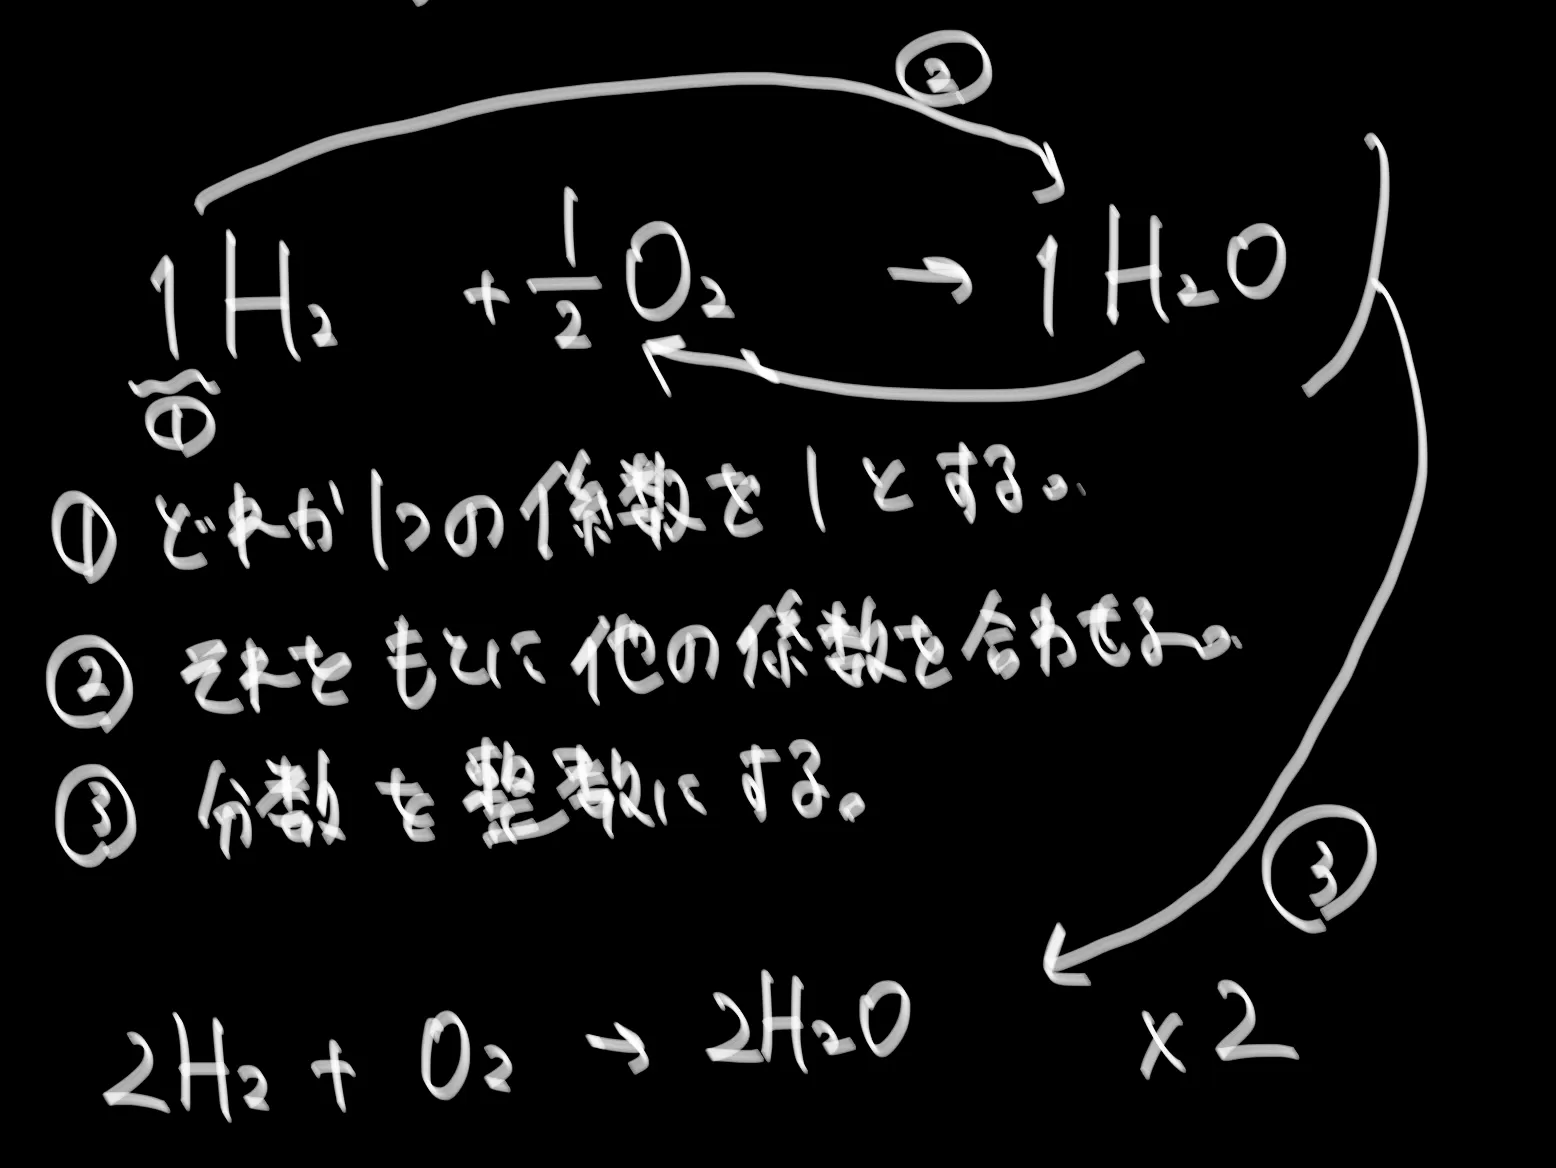 ②
1H₂ + 1/2 O₂ → 1H₂O
①
① どれか1つの係数を1とする。
② それをもとに他の係数を合わせる。
③ 分数を整数にする。
③
2H₂ + O₂ → 2H₂O ×2